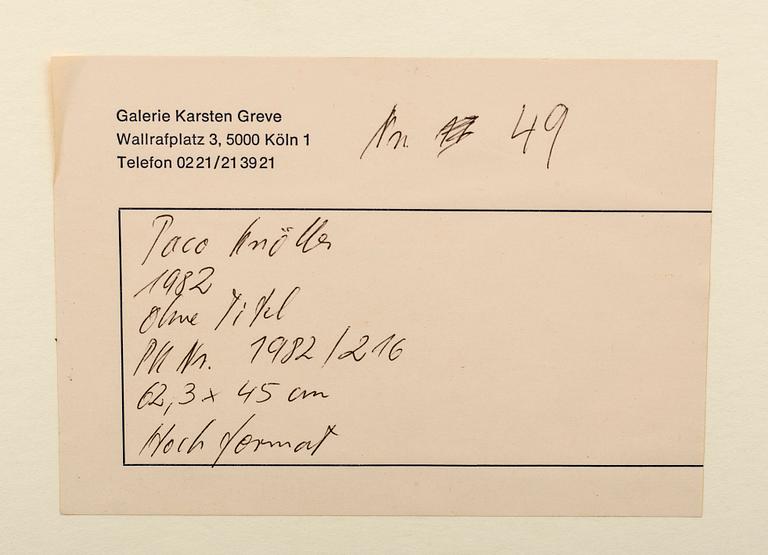 Galerie Karsten Greve
Wallrafplatz 3, 5000 Köln 1
Telefon 0221/213921
Nr. 49
Paco Knöller
1982
ohne Titel
PK Nr. 1982/216
62,3 x 45 cm
Hochformat